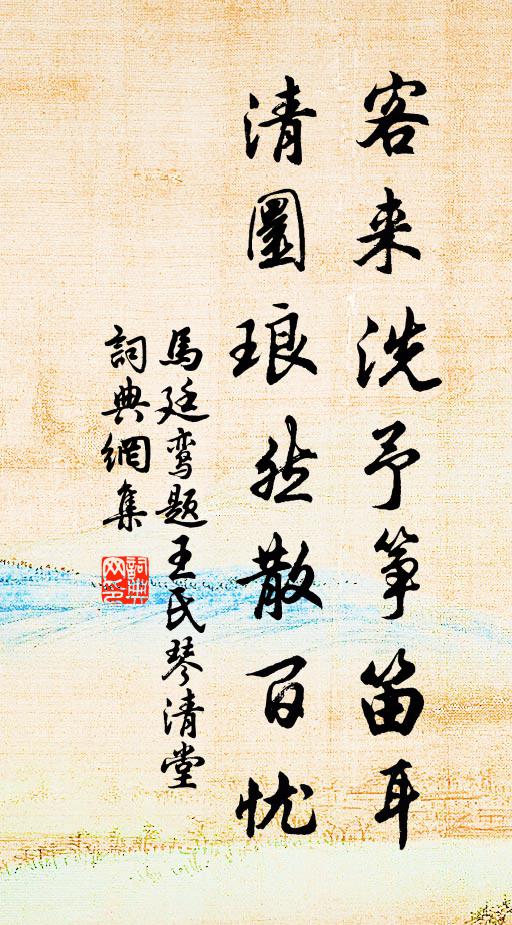 客来洗予筝笛耳
清圜琅然散百忧
馬廷鸾题王氏琴清堂
詞典網集
詞典
网